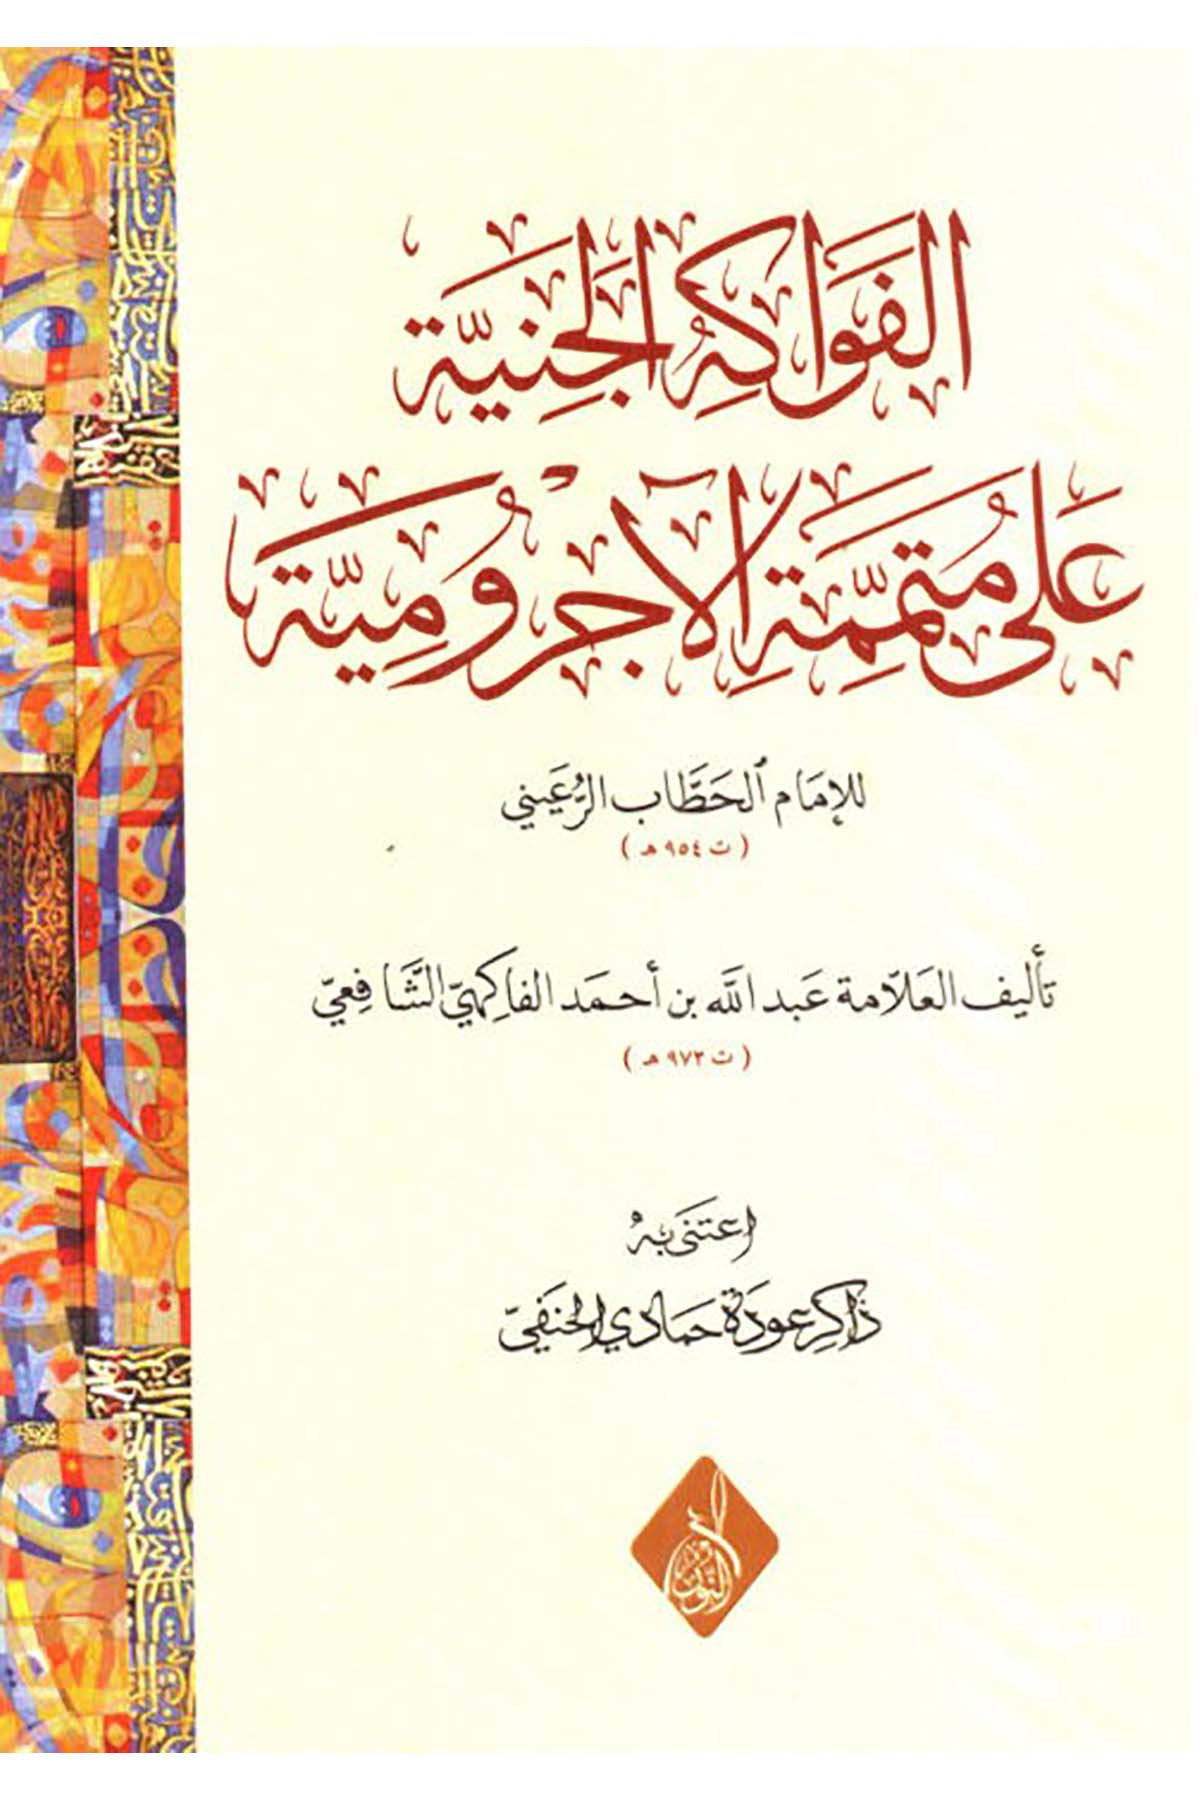 الفَوَاكِهُ الجَنِيَّة
عَلَى مُتَمِّمَةِ الآجُرُّومِيَّة
للإِمَام الحَطَّاب الرُّعَيني
( ت ٩٥٤ هـ )
تأليف العَلَّامة عَبد اللَّه بن أحمَد الفاكِهيّ الشَّافِعيّ
( ت ٩٧٢ هـ )
اعتَنى بِهُ
ذاكِر عودَة حمادي الحنَفيّ
النور